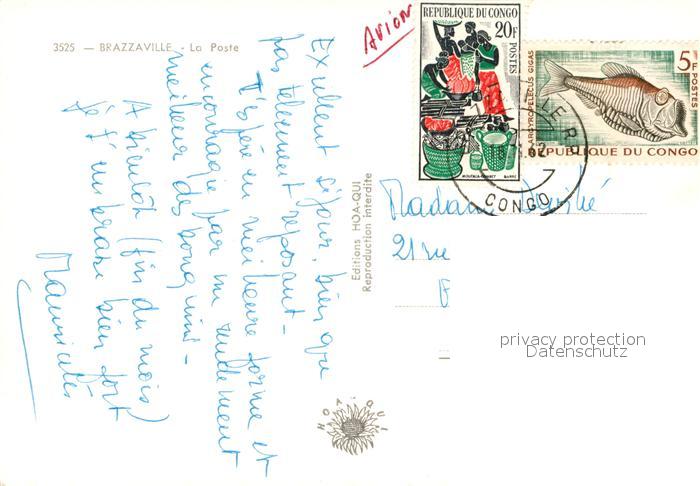 3525 — BRAZZAVILLE - La Poste
Avion
REPUBLIQUE DU CONGO
20F
POSTES
MOUTALA-LOUBET
BARRE
5F
POSTES
ARGYROPELECUS GIGAS
REPUBLIQUE DU CONGO
62
CONGO
Excellent séjour, bien que
pas tellement reposant -
T'espère en meilleure forme et
encouragée par un rudement
meilleur des
A bientôt (fin du mois)
Je t'embrasse bien fort
Editions HOA-QUI
Reproduction interdite
Madame
21 rue
HOA-QUI
privacy protection
Datenschutz